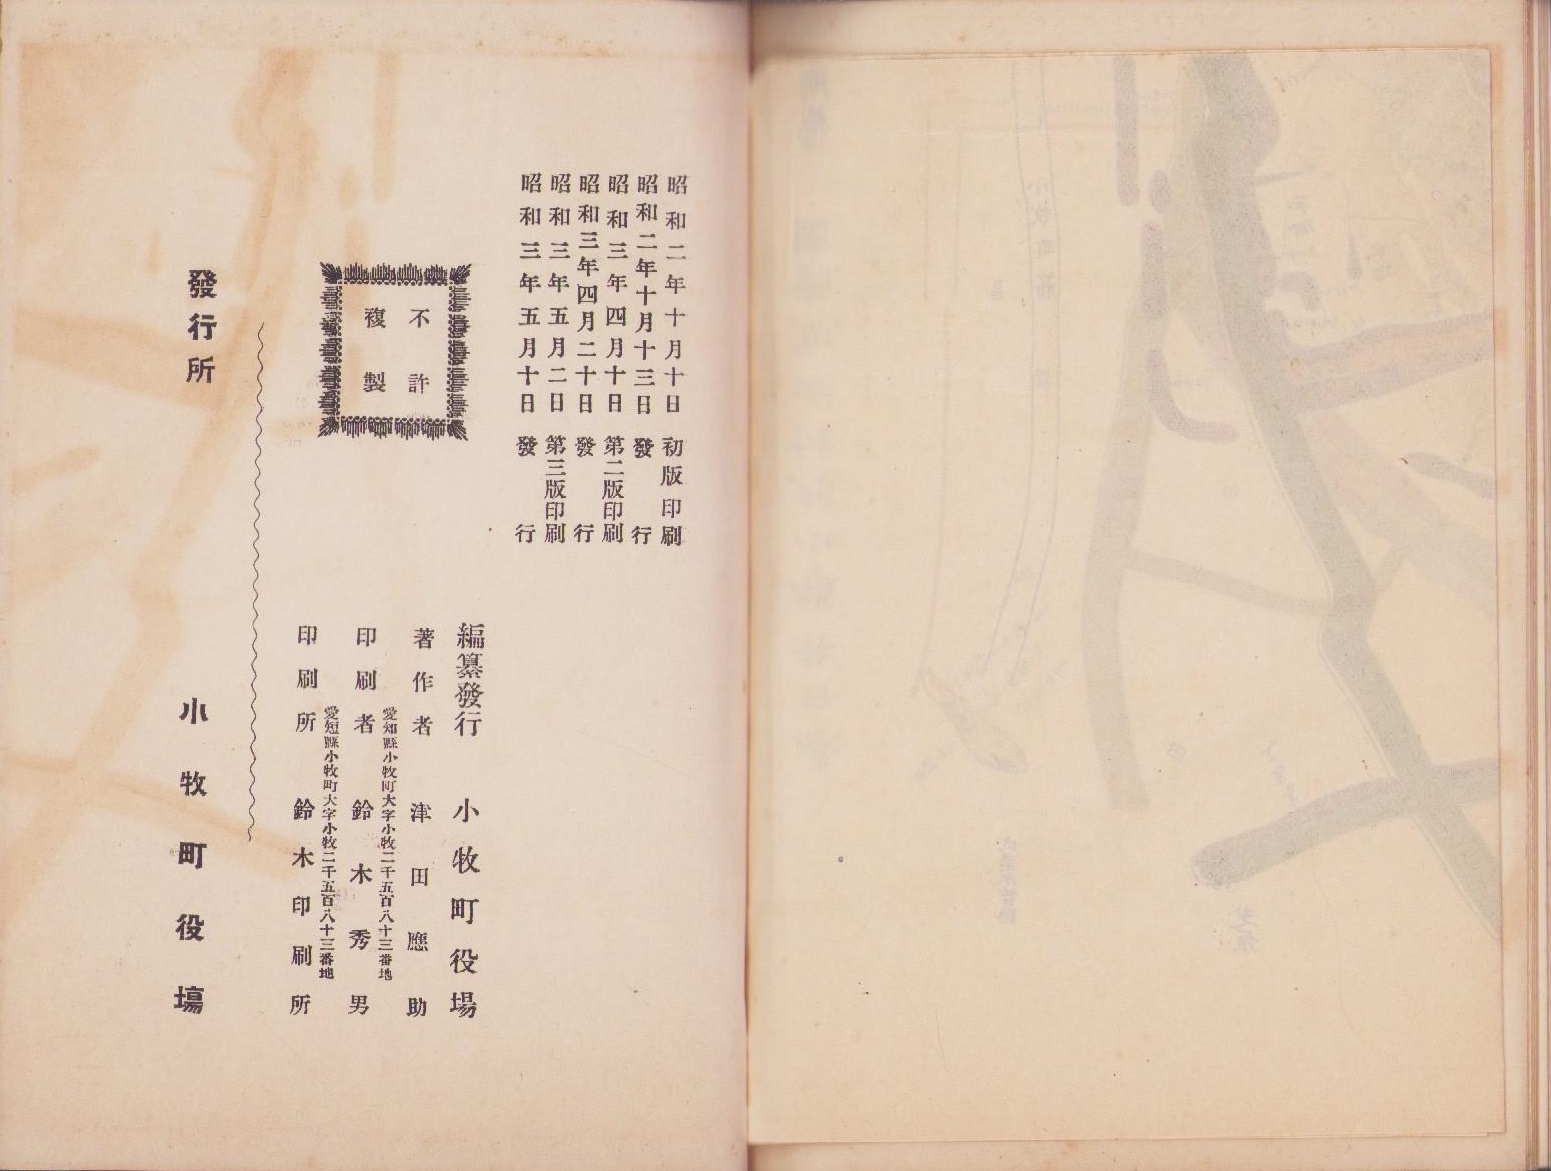 昭和二年十月十日初版印刷
昭和二年十月十三日發行
昭和三年四月十日第二版印刷
昭和三年四月二十日發行
昭和三年五月二日第三版印刷
昭和三年五月十日發行
不許
複製
編纂發行 小牧町役場
著作者 津田應助
愛知縣小牧町大字小牧二千五百八十三番地
印刷者 鈴木秀男
愛知縣小牧町大字小牧二千五百八十三番地
印刷所 鈴木印刷所
發行所 小牧町役塲